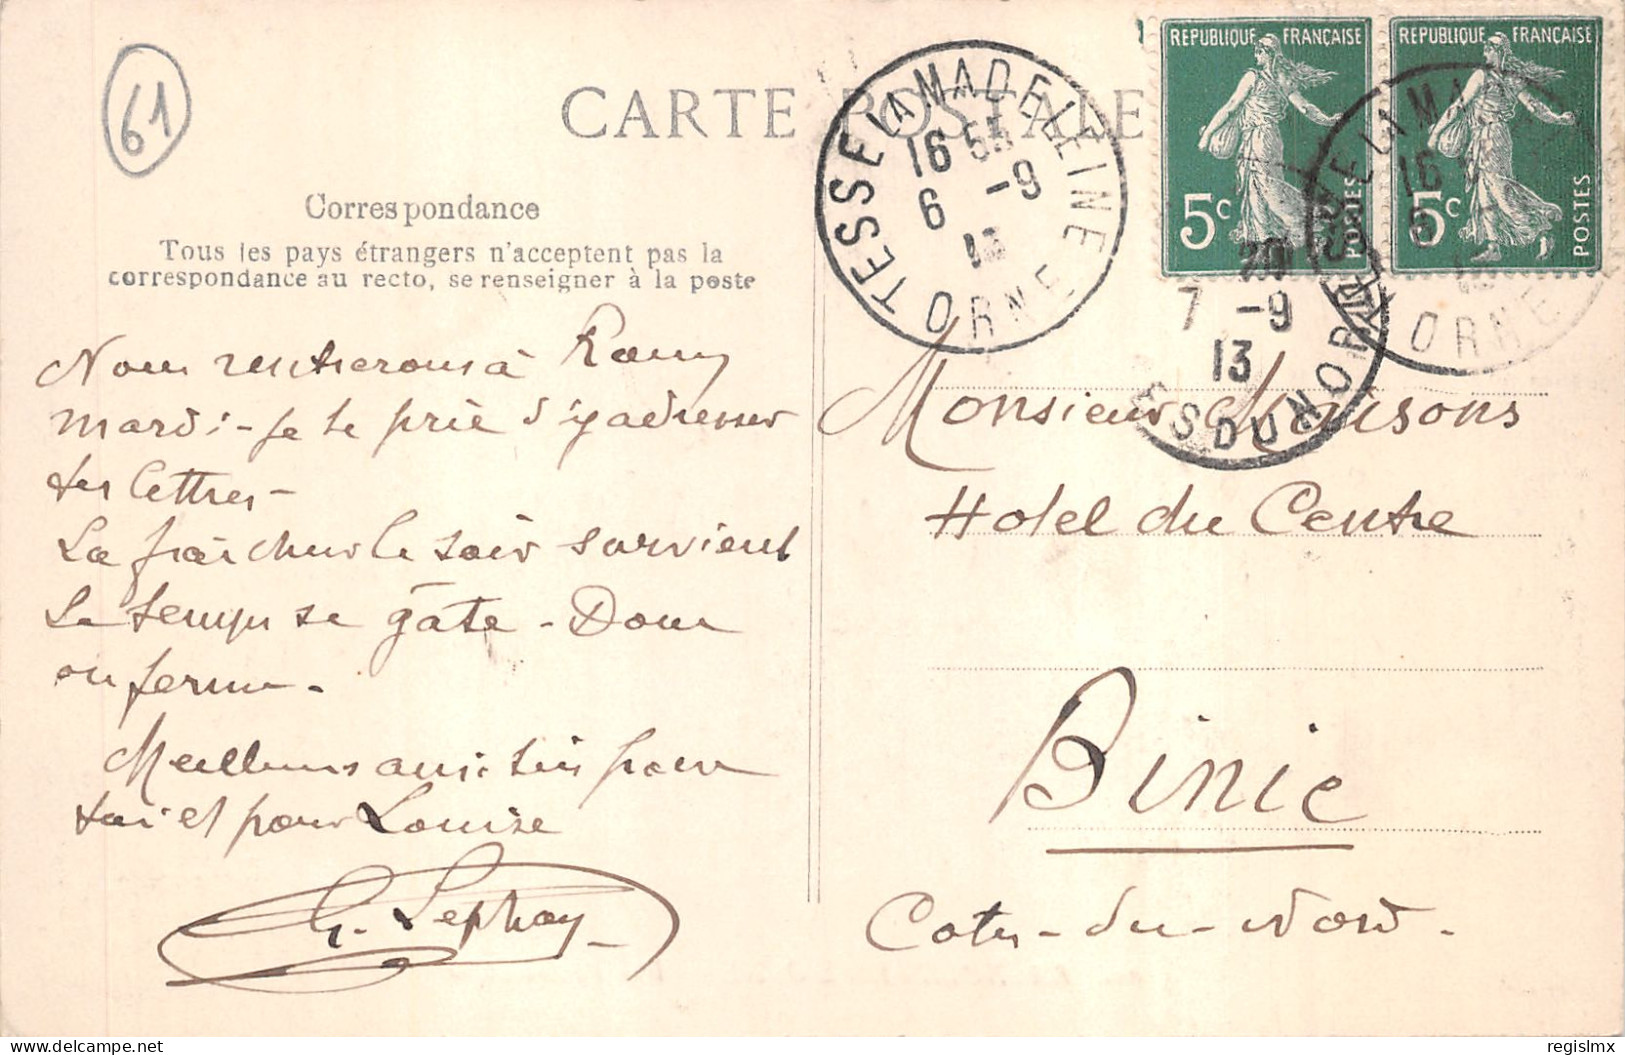 61
CARTE POSTALE
Correspondance
Tous les pays étrangers n'acceptent pas la
correspondance au recto, se renseigner à la poste
REPUBLIQUE FRANÇAISE
5c
POSTES
REPUBLIQUE FRANÇAISE
5c
POSTES
TESSE LA MADELEINE
16 55
6 -9
13
ORNE
LA MA
16
6
ORNE
7 -9
13
ES DU NORD
Nous rentrerons à
mardi - Je te prie d'y adresser
tes lettres -
La fraîcheur le soir survient
Le temps se gâte - Donc
on ferme -
Meilleurs amitiés pour
toi et pour Louise
G.
Monsieur Maisons
Hotel du Centre
Binic
Cotes-du-Nord.
delcampe.net
regislmx